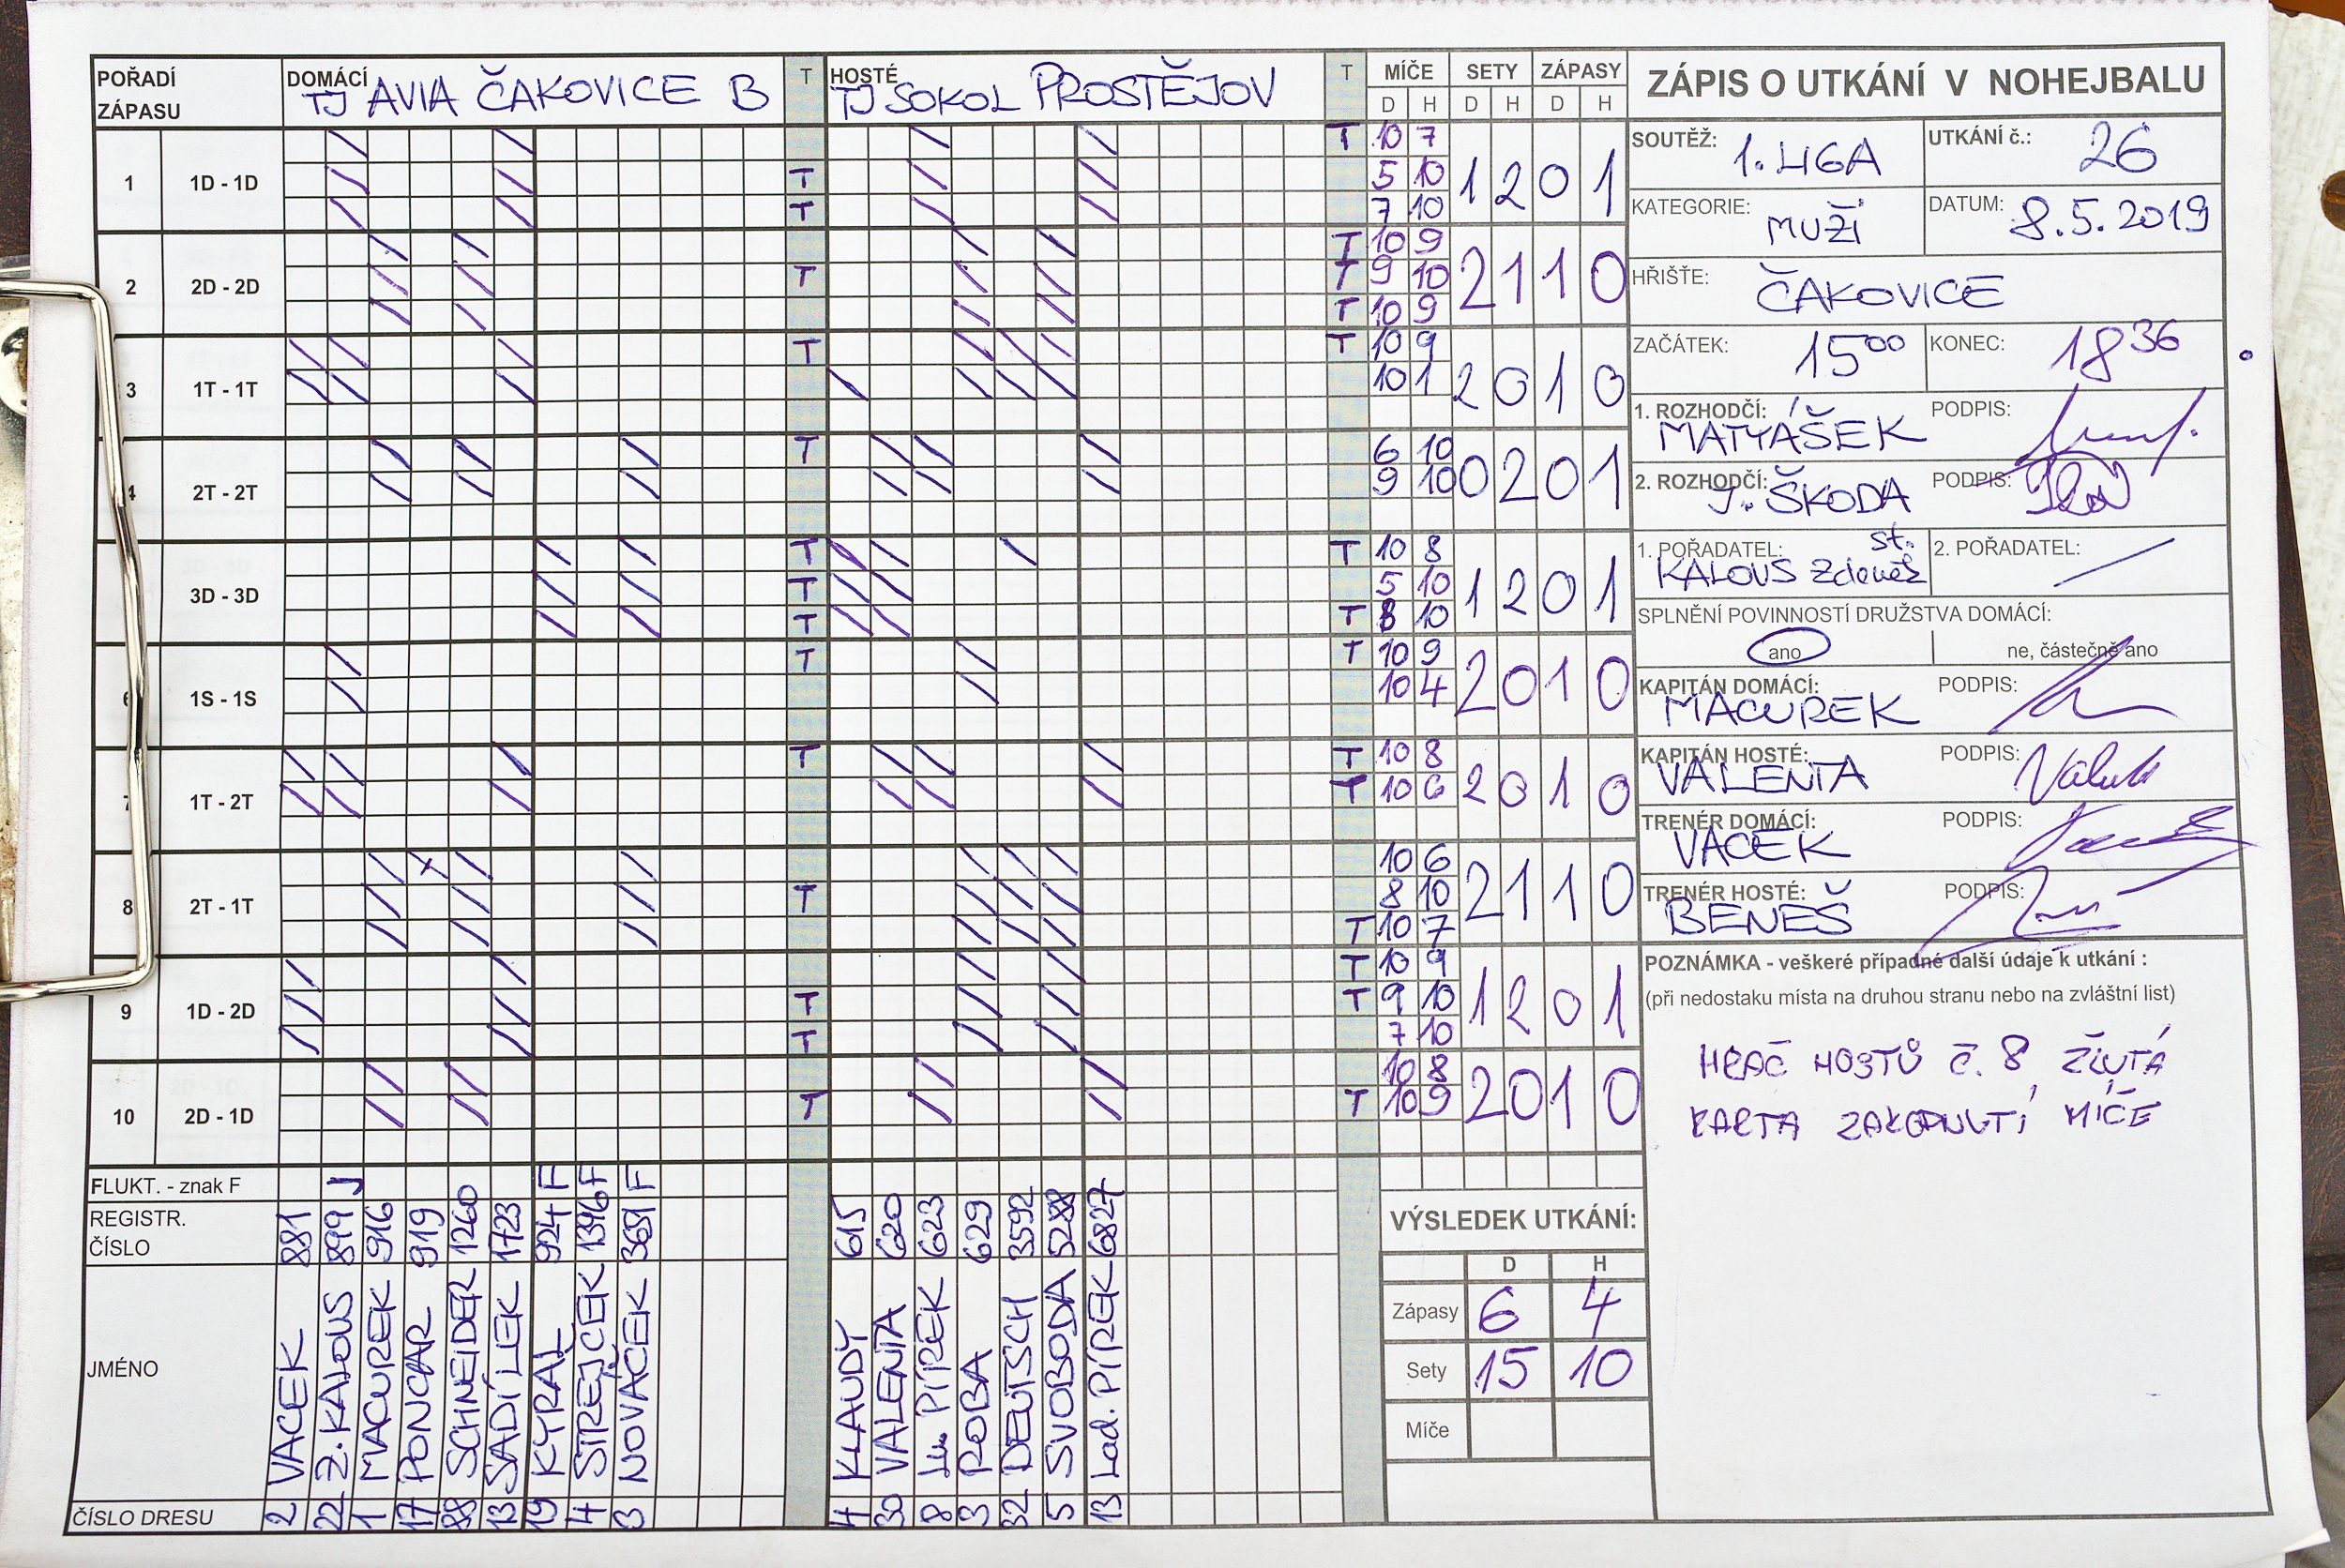 POŘADÍ ZÁPASU
DOMÁCÍ TJ AVIA ČAKOVICE B
T
HOSTÉ TJ SOKOL PROSTĚJOV
T
MÍČE SETY ZÁPASY
D H D H D H
1 1D - 1D
T 10 7
T 5 10
T 7 10
1 2 0 1
2 2D - 2D
T 10 9
T T 9 10
T 10 9
2 1 1 0
3 1T - 1T
T T 10 9
10 1
2 0 1 0
4 2T - 2T
T 6 10
9 10
0 2 0 1
3D - 3D
T T 10 8
T 5 10
T T 8 10
1 2 0 1
6 1S - 1S
T T 10 9
10 4
2 0 1 0
7 1T - 2T
T T 10 8
T 10 6
2 0 1 0
8 2T - 1T
10 6
T 8 10
T 10 7
2 1 1 0
9 1D - 2D
T 10 9
T T 9 10
T 7 10
1 2 0 1
10 2D - 1D
10 8
T T 10 9
2 0 1 0
FLUKT. - znak F
J F F F
REGISTR. ČÍSLO
881 899 916 919 1260 1723 924 1396 3691
615 620 623 629 3592 6827
JMÉNO
VACEK
Z. KALOUS
MACUREK
PONCAR
SCHNEIDER
SADÍLEK
KYRAL
STREJČEK
NOVÁČEK
KLAUDY
VALENTA
PÍREK
ROBA
DEUTSCH
SVOBODA
Lad. PÍREK
ČÍSLO DRESU
2 22 1 17 88 13 19 4 3
4 30 8 3 32 5 13
ZÁPIS O UTKÁNÍ V NOHEJBALU
SOUTĚŽ: 1. LIGA
UTKÁNÍ č.: 26
KATEGORIE: MUŽI
DATUM: 8.5.2019
HŘIŠTE: ČAKOVICE
ZAČÁTEK: 15 00
KONEC: 18 36
1. ROZHODČÍ: MATYÁŠEK
PODPIS:
2. ROZHODČÍ: J. ŠKODA
PODPIS:
1. POŘADATEL: st.
KALOUS Zdeněk
2. POŘADATEL:
SPLNĚNÍ POVINNOSTÍ DRUŽSTVA DOMÁCÍ:
ano
ne, částečně ano
KAPITÁN DOMÁCÍ: MACUREK
PODPIS:
KAPITÁN HOSTÉ: VALENTA
PODPIS:
TRENÉR DOMÁCÍ: VACEK
PODPIS:
TRENÉR HOSTÉ: BENEŠ
PODPIS:
POZNÁMKA - veškeré případné další údaje k utkání :
(při nedostaku místa na druhou stranu nebo na zvláštní list)
HRAČ HOSTŮ Č. 8 ŽLUTÁ
KARTA ZAKOPNUTÍ MÍČE
VÝSLEDEK UTKÁNÍ:
D H
Zápasy 6 4
Sety 15 10
Míče